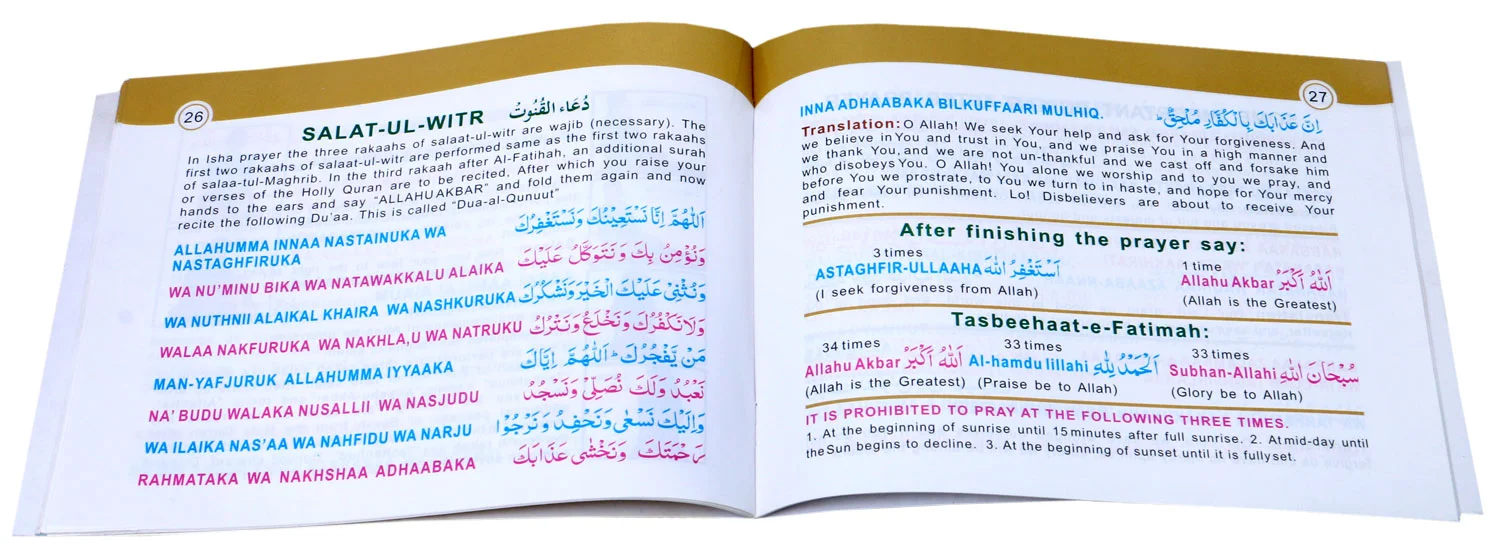 26
SALAT-UL-WITR دُعَاء القُنُوتُ
In Isha prayer the three rakaahs of salaat-ul-witr are wajib (necessary). The
first two rakaahs of salaat-ul-witr are performed same as the first two rakaahs
of salaa-tul-Maghrib. In the third rakaah after Al-Fatihah, an additional surah
or verses of the Holly Quran are to be recited, After which you raise your
hands to the ears and say "ALLAHUAKBAR" and fold them again and now
recite the following Du'aa. This is called "Dua-al-Qunuut"
ALLAHUMMA INNAA NASTAINUKA WA
NASTAGHFIRUKA
اَللّٰهُمَّ اِنَّا نَسْتَعِيْنُكَ وَنَسْتَغْفِرُكَ
WA NU'MINU BIKA WA NATAWAKKALU ALAIKA وَنُؤْمِنُ بِكَ وَنَتَوَكَّلُ عَلَيْكَ
WA NUTHNII ALAIKAL KHAIRA WA NASHKURUKA وَنُثْنِيْ عَلَيْكَ الْخَيْرَ وَنَشْكُرُكَ
WALAA NAKFURUKA WA NAKHLA,U WA NATRUKU وَلَا نَكْفُرُكَ وَنَخْلَعُ وَنَتْرُكُ
MAN-YAFJURUK ALLAHUMMA IYYAAKA مَنْ يَّفْجُرُكَ ؕ اَللّٰهُمَّ اِيَّاكَ
NA' BUDU WALAKA NUSALLII WA NASJUDU نَعْبُدُ وَلَكَ نُصَلِّيْ وَنَسْجُدُ
WA ILAIKA NAS'AA WA NAHFIDU WA NARJU وَاِلَيْكَ نَسْعٰى وَنَحْفِدُ وَنَرْجُوْا
RAHMATAKA WA NAKHSHAA ADHAABAKA رَحْمَتَكَ وَنَخْشٰى عَذَابَكَ
27
INNA ADHAABAKA BILKUFFAARI MULHIQ. اِنَّ عَذَابَكَ بِالْكُفَّارِ مُلْحِقٌ۔
Translation: O Allah! We seek Your help and ask for Your forgiveness. And
we believe in You and trust in You, and we praise You in a high manner and
we thank You, and we are not un-thankful and we cast off and forsake him
who disobeys You. O Allah! You alone we worship and to you we pray, and
before You we prostrate, to You we turn to in haste, and hope for Your mercy
and fear Your punishment. Lo! Disbelievers are about to receive Your
punishment.
After finishing the prayer say:
3 times
ASTAGHFIR-ULLAAHA اَسْتَغْفِرُ اللّٰه
(I seek forgiveness from Allah)
1 time
Allahu Akbar اَللّٰهُ اَكْبَرُ
(Allah is the Greatest)
Tasbeehaat-e-Fatimah:
34 times
Allahu Akbar اَللّٰهُ اَكْبَرُ
(Allah is the Greatest)
33 times
Al-hamdu lillahi اَلْحَمْدُ لِلّٰهِ
(Praise be to Allah)
33 times
Subhan-Allahi سُبْحَانَ اللّٰه
(Glory be to Allah)
IT IS PROHIBITED TO PRAY AT THE FOLLOWING THREE TIMES.
1. At the beginning of sunrise until 15 minutes after full sunrise. 2. At mid-day until
the Sun begins to decline. 3. At the beginning of sunset until it is fully set.